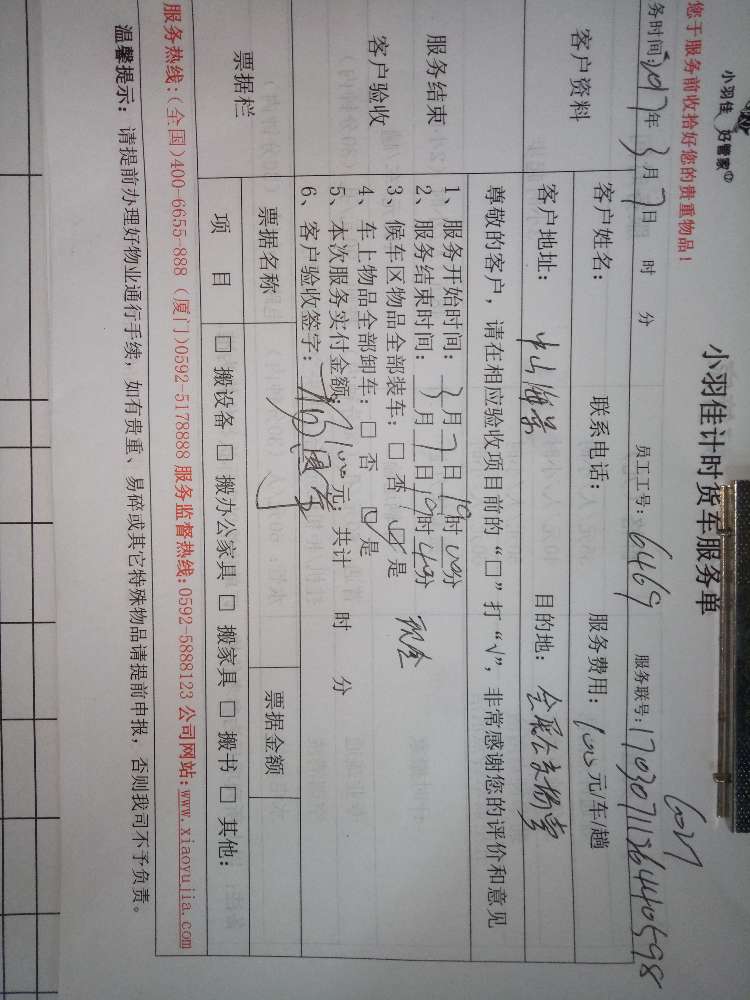 小羽佳 好管家
您于服务前收拾好您的贵重物品！
小羽佳计时货车服务单
务时间:2017年3月7日 时 分 员工工号: 6469 服务联号: 1703071136440598
客户资料
客户姓名: 联系电话: 服务费用: 100元/车/趟
客户地址: 中山海景 目的地:
尊敬的客户，请在相应验收项目前的“□”打“√”，非常感谢您的评价和意见
服务结束
客户验收
1、服务开始时间: 3月7日19时00分
2、服务结束时间: 3月7日19时40分 现金
3、候车区物品全部装车: □ 否 ☑ 是
4、车上物品全部卸车: □ 否 ☑ 是
5、本次服务实付金额: 100元; 共计 时 分
6、客户验收签字:
票据栏
票据名称 票据金额
项 目 □ 搬设备 □ 搬办公家具 □ 搬家具 □ 搬书 □ 其他:
服务热线:(全国)400-6655-888 (厦门)0592-5178888 服务监督热线:0592-5888123 公司网站:www.xiaoyujia.com
温馨提示: 请提前办理好物业通行手续，如有贵重、易碎或其它特殊物品请提前申报，否则我司不予负责。